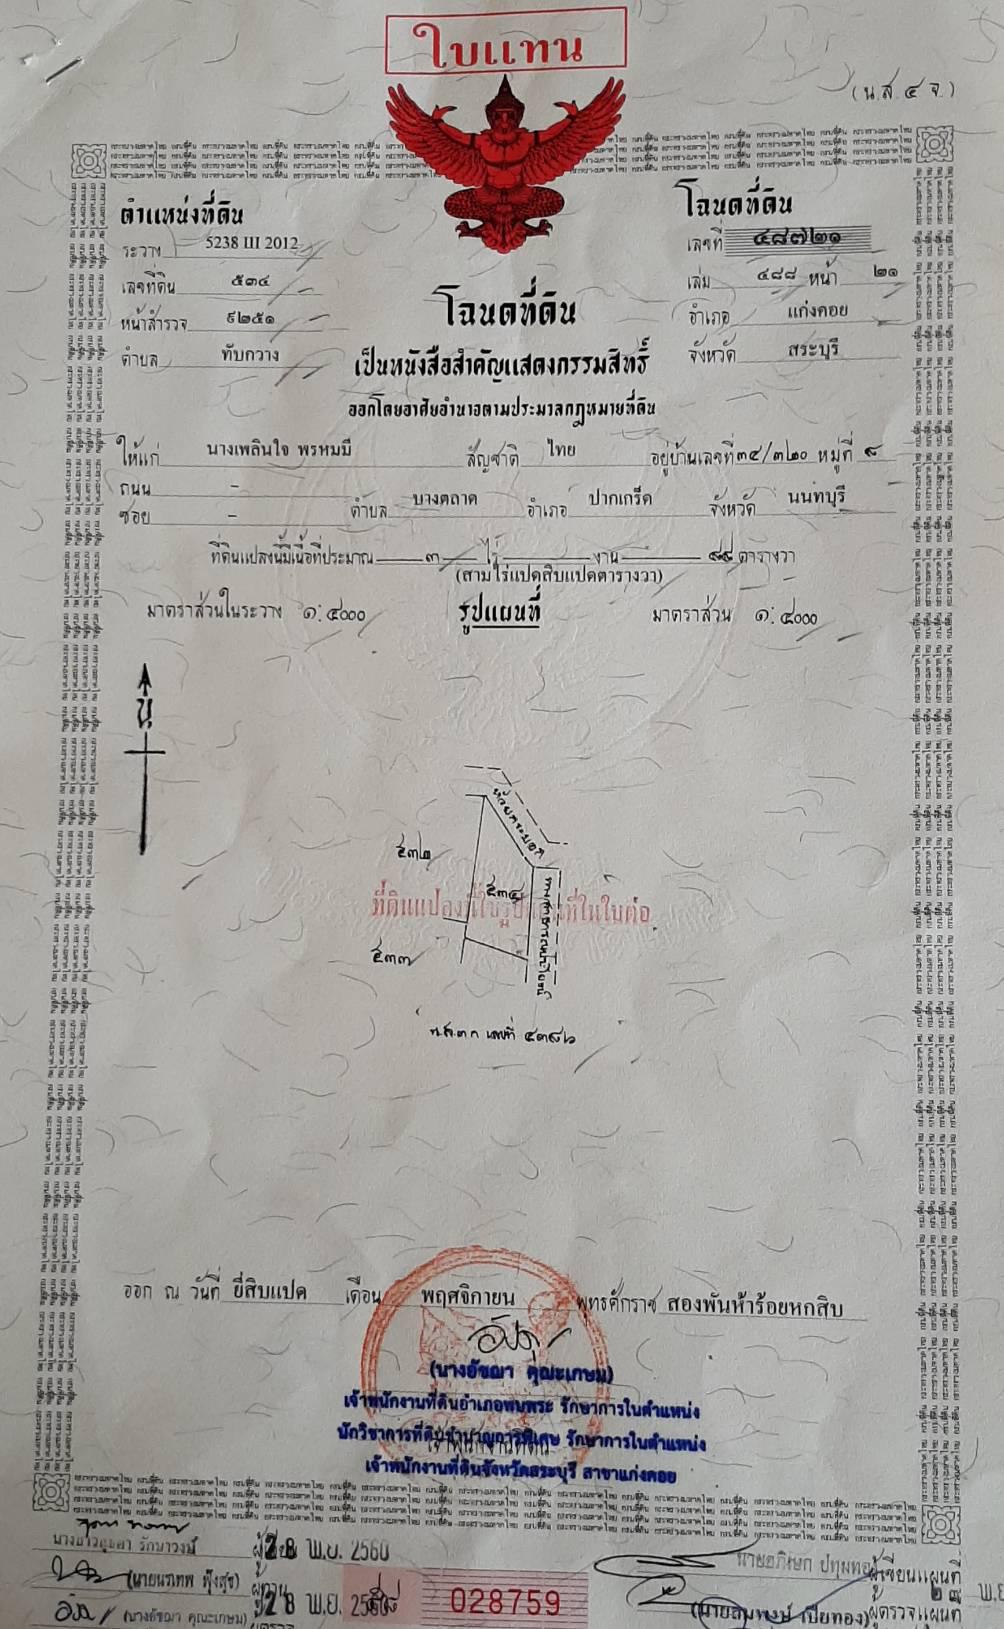 ใบแทน
(น.ส. ๔ จ.)
ตำแหน่งที่ดิน
ระวาง 5238 III 2012
เลขที่ดิน ๕๓๔
หน้าสำรวจ ๙๒๕๑
ตำบล ทับกวาง
โฉนดที่ดิน
เลขที่ ๔๘๗๒๑
เล่ม ๔๘๘ หน้า ๒๑
อำเภอ แก่งคอย
จังหวัด สระบุรี
โฉนดที่ดิน
เป็นหนังสือสำคัญแสดงกรรมสิทธิ์
ออกโดยอาศัยอำนาจตามประมวลกฎหมายที่ดิน
ให้แก่ นางเพลินใจ พรหมมี สัญชาติ ไทย อยู่บ้านเลขที่ ๓๔/๓๒๐ หมู่ที่ ๘
ถนน -
ซอย - ตำบล บางตลาด อำเภอ ปากเกร็ด จังหวัด นนทบุรี
ที่ดินแปลงนี้มีเนื้อที่ประมาณ ๓ ไร่ งาน ๘๘ ตารางวา
(สามไร่แปดสิบแปดตารางวา)
มาตราส่วนในระวาง ๑:๔๐๐๐ รูปแผนที่ มาตราส่วน ๑:๔๐๐๐
น
๕๓๒
๕๓๔
ทางสาธารณประโยชน์
ที่ดินแปลงนี้มีรูปแผนที่ในใบต่อ
๕๓๓
น.ส.๓ ก เลขที่
ออก ณ วันที่ ยี่สิบแปด เดือน พฤศจิกายน พุทธศักราช สองพันห้าร้อยหกสิบ
(นางอัชฌา คุณะเกษม)
เจ้าพนักงานที่ดินอำเภอพนพระ รักษาการในตำแหน่ง
นักวิชาการที่ดินชำนาญการพิเศษ รักษาการในตำแหน่ง
เจ้าพนักงานที่ดิน
เจ้าพนักงานที่ดินจังหวัดสระบุรี สาขาแก่งคอย
28 พ.ย. 2560
28 พ.ย. 2560
(นางอัชฌา คุณะเกษม)
028759
ผู้เขียนแผนที่
ผู้ตรวจแผนที่